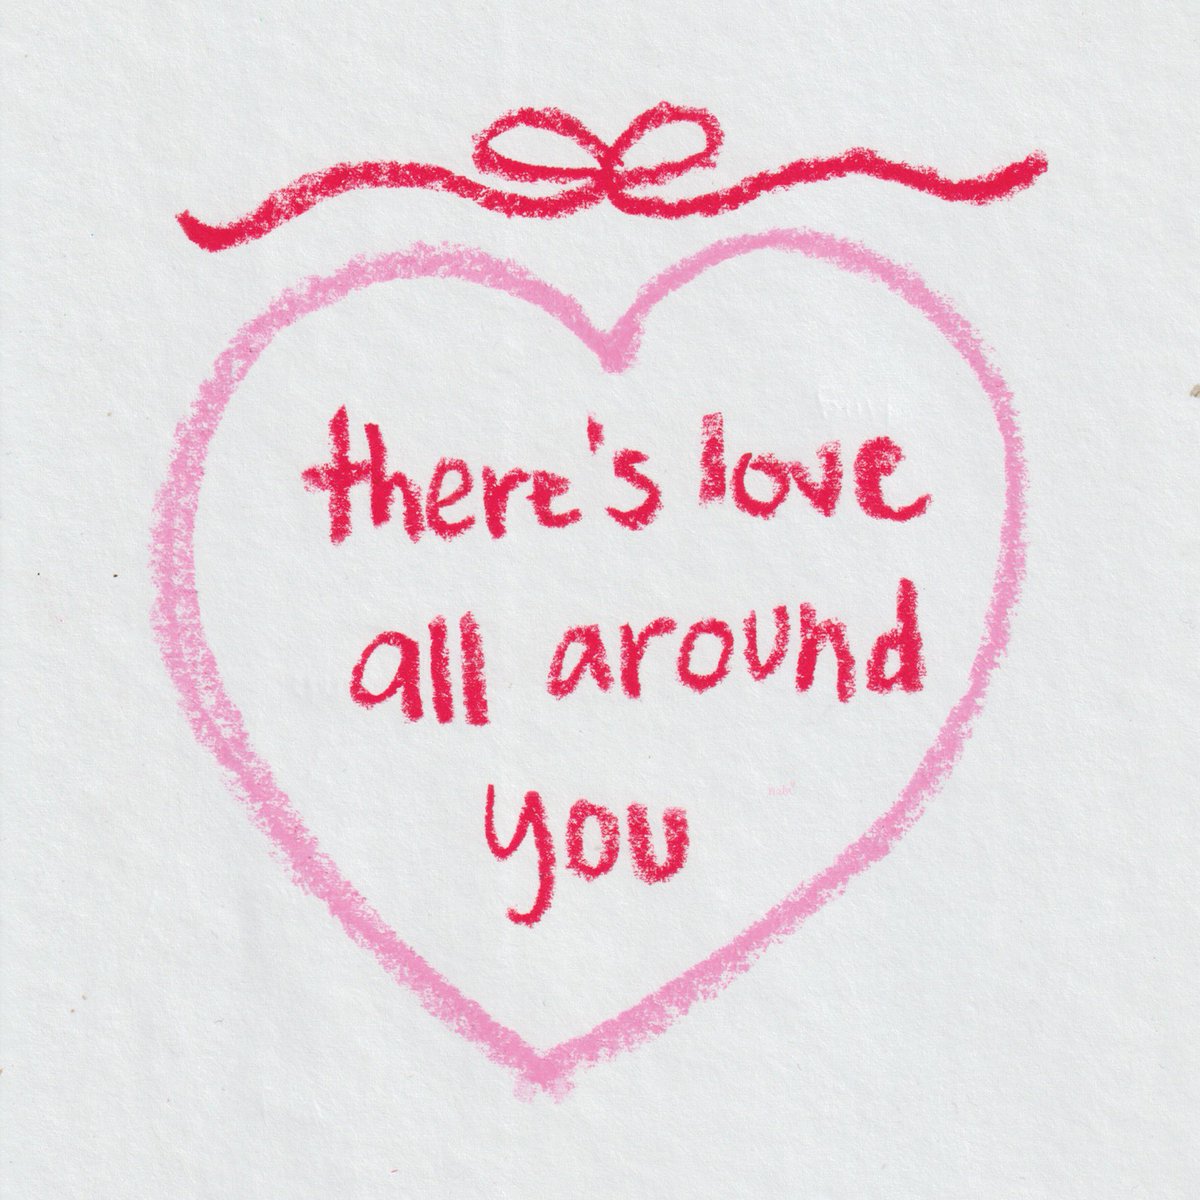 there's love
all around
you